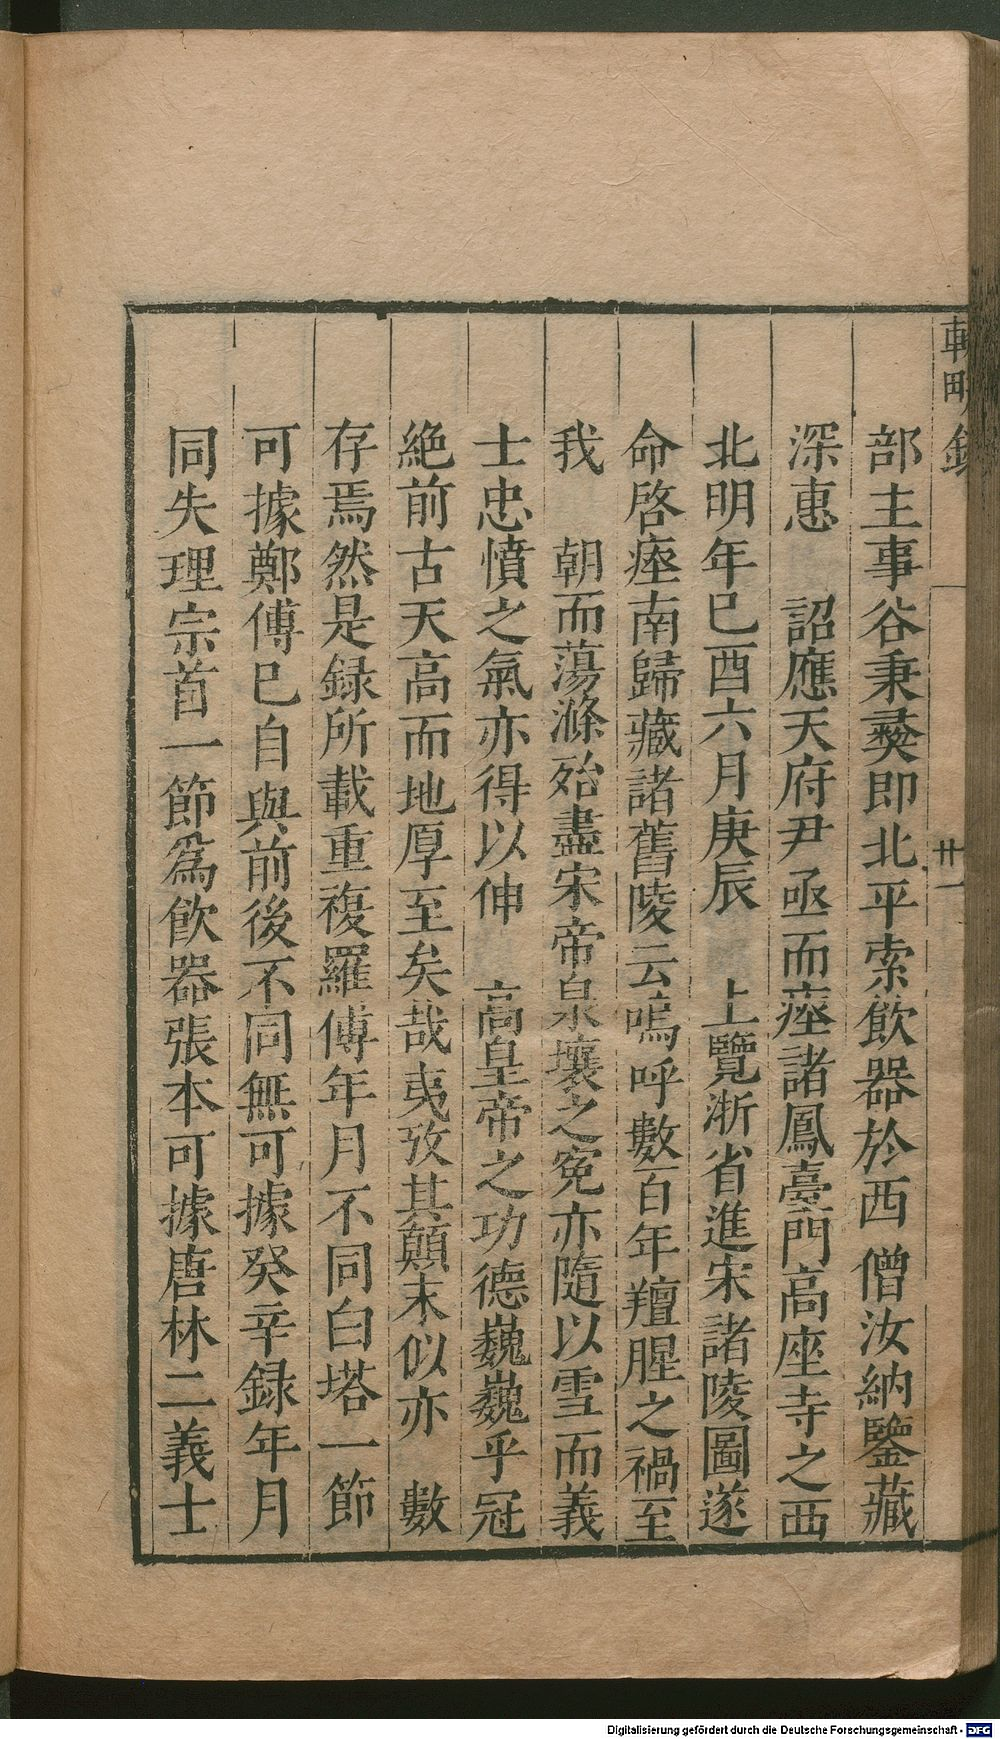 部主事谷秉彜即北平索飲器於西僧汝納鑒藏
深惠 詔應天府尹亟而瘞諸鳳臺門高座寺之西
北明年巳酉六月庚辰 上覽浙省進宋諸陵圖遂
命啓瘞南歸藏諸舊陵云嗚呼數百年羶腥之禍至
我 朝而蕩滌殆盡宋帝泉壤之寃亦隨以雪而義
士忠憤之氣亦得以伸 高皇帝之功德巍巍乎冠
絶前古天高而地厚至矣哉夷攷其顛末似亦 數
存焉然是録所載重複羅傳年月不同白塔一節
可據鄭傳巳自與前後不同無可據癸辛録年月
同失理宗首一節爲飲器張本可據唐林二義士
廿一
Digitalisierung gefördert durch die Deutsche Forschungsgemeinschaft - DFG